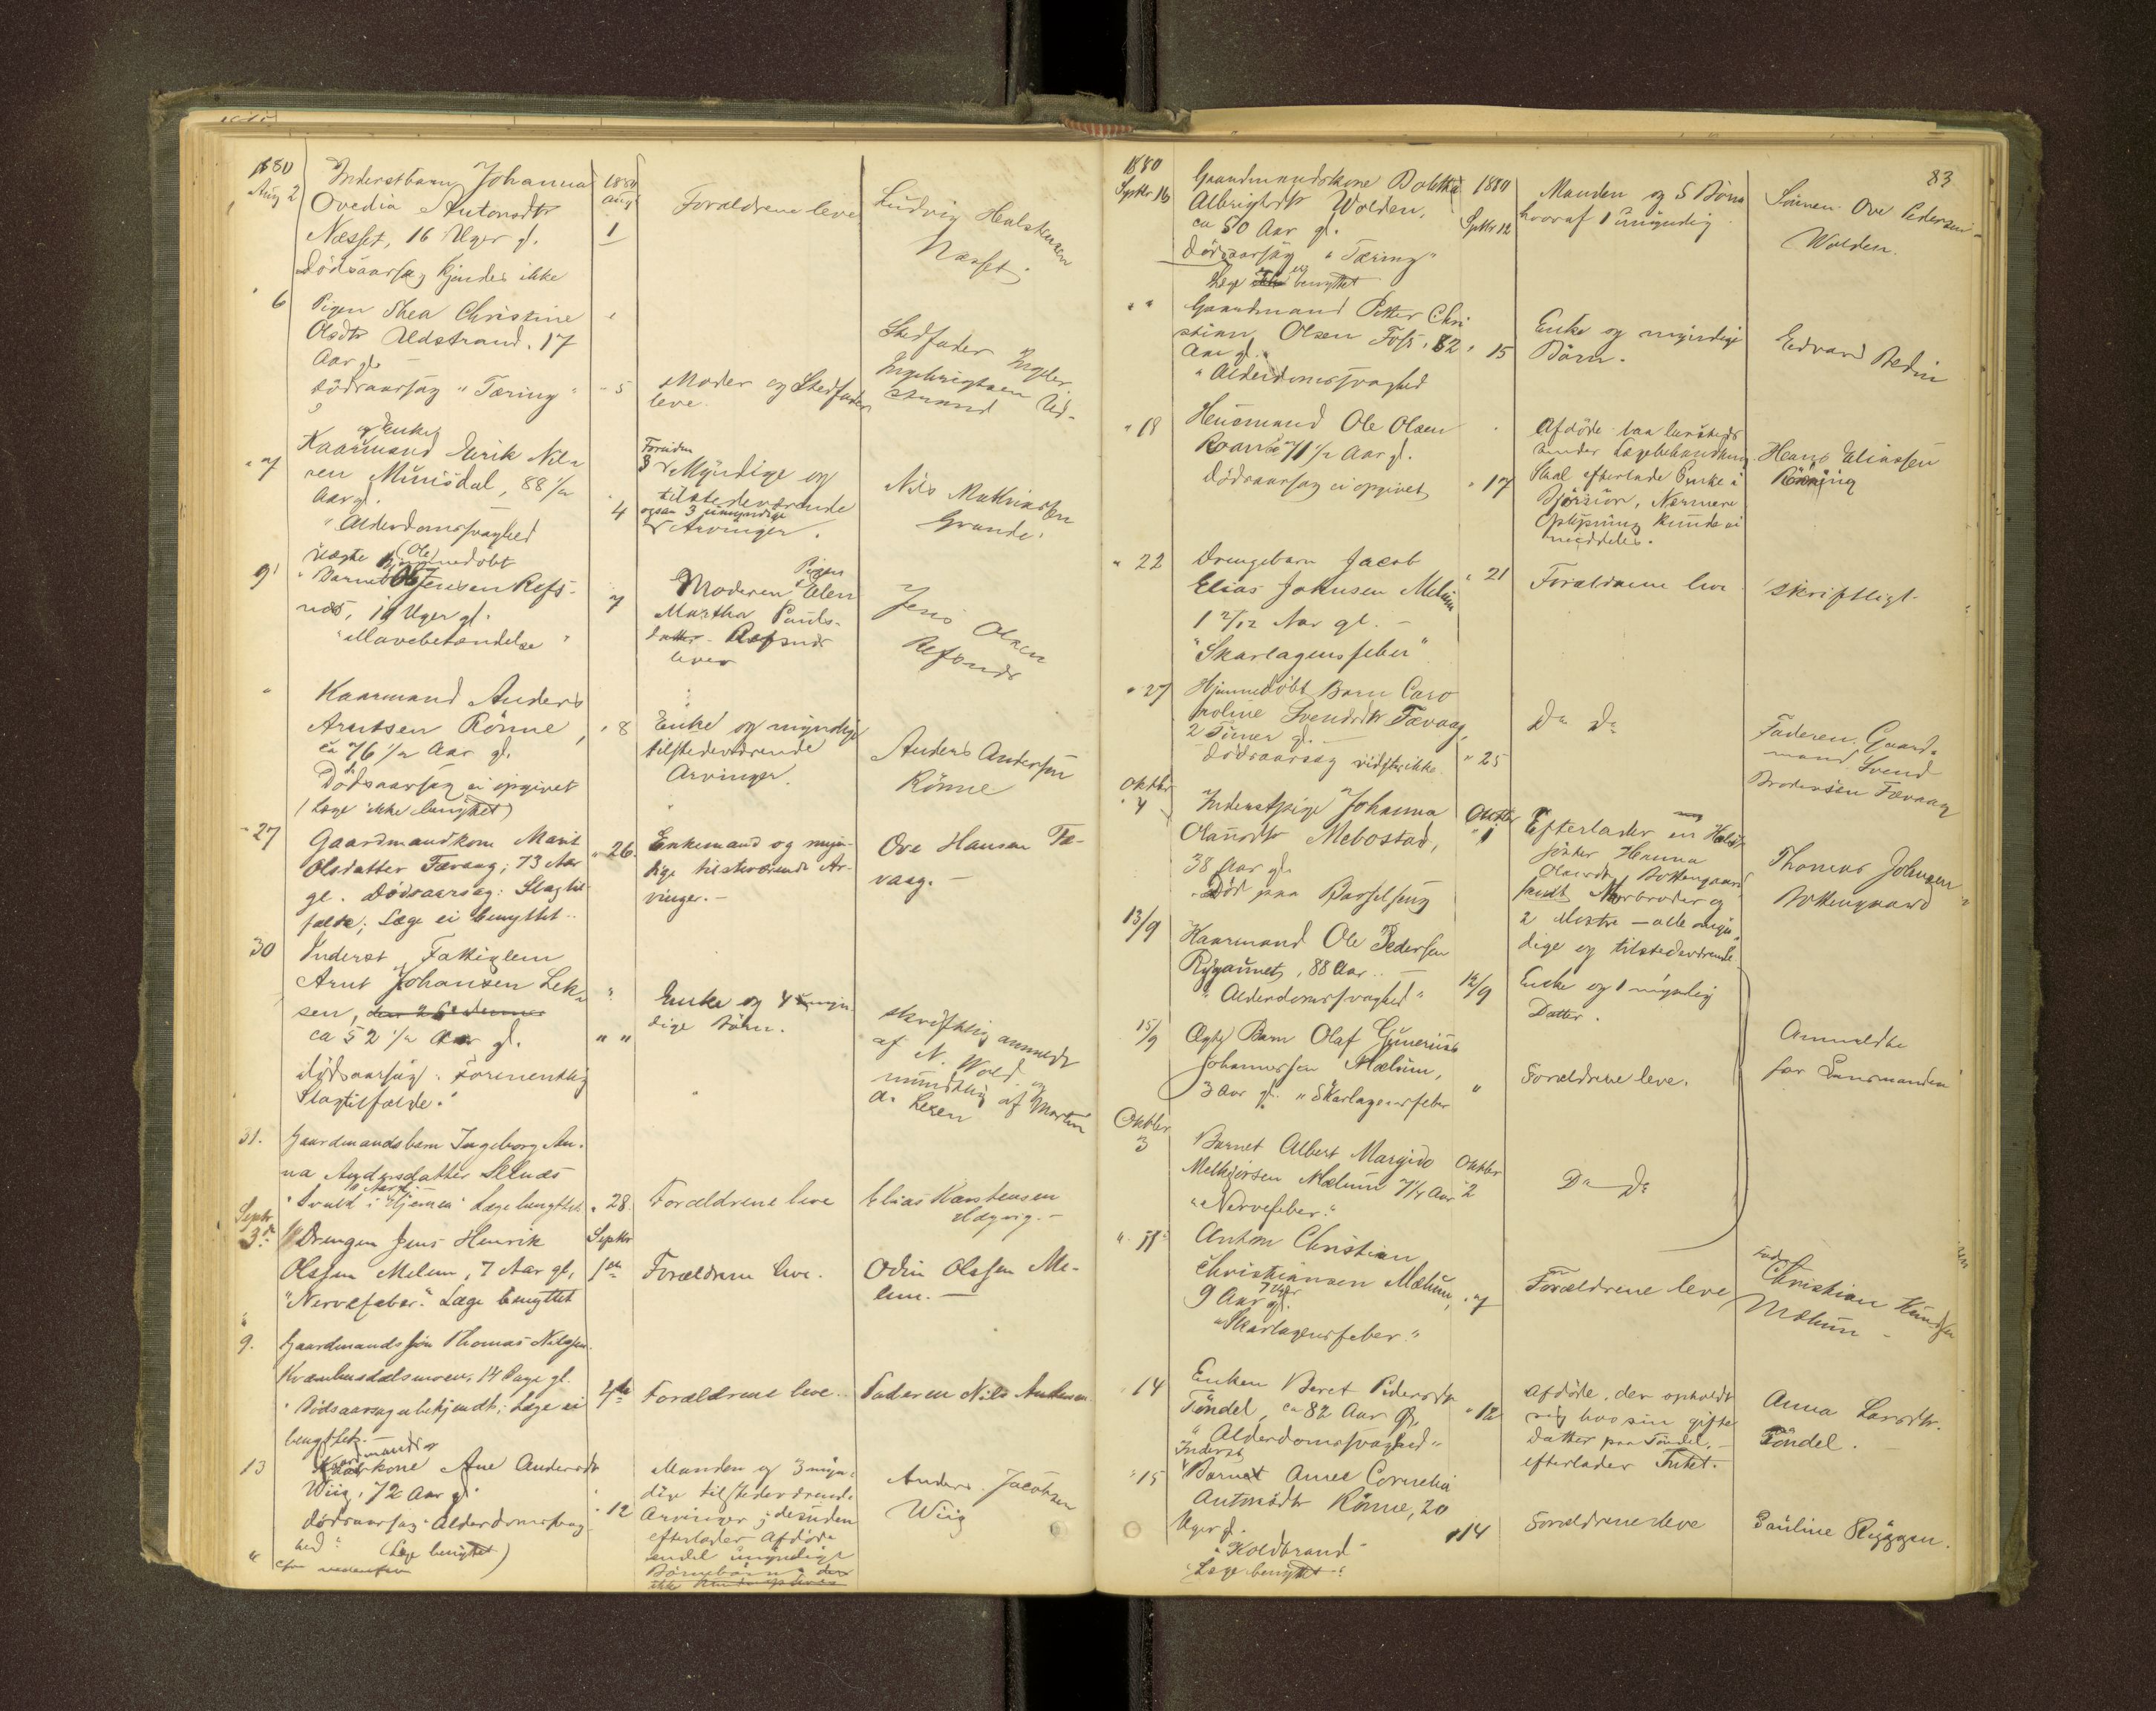 1880
Aug 2
Inderstbarn Johanna
Ovedia Antonsdtr
Næsset, 16 Uger gl.
Dödsaarsag kjendes ikke
1880
Aug
1
Forældrene leve
Ludvig Halstensen
Næsset.
6
Pigen Thea Christine
Olsdtr Uldstrand, 17
Aar gl.
dödsaarsag "Tæring"
" 5
Moder og Stedfader
leve.
Stedfader
Engebrigtsen Ud-
strand
" 7
og Enkem
Kaarmand Eurik Nil-
sen Munisdal, 88 1/2
Aar gl.
"Alderdomssvaghed
4
Foruden
Myndige og
tilstedeværende
ogsaa 3 umyndige
Arvinger.
Nils Mathiassen
Grande.
9
uægte (Ole) hjemmedöbt
Barnet Ole Jensen Refs-
nes, 11 Uger gl.
"Mavebetændelse"
7
Pigen
Moderen Elen
Martha Pauls-
datter Refsnes
lever
Jens Olsen
Refsnes
"
Kaarmand Anders
Arntsen Rönne,
ca 76 1/2 Aar gl.
Dödsaarsag ei opgivet
(Læge ikke benyttet)
" 8
Enke og myndige
tilstedeværende
Arvinger.
Anders Andersen
Rönne
" 27
Gaardmandkone Marit
Olsdatter Tævaag; 73 Aar
gl. Dödsaarsag: Slagtil-
fælde; Læge ei benyttet..
" 26.
Enkemand og myn-
dige tilsteværende Ar-
vinger. -
Ove Hansen Tæ-
vaag. -
30
Inderst og Fattiglem
Arnt Johansen Lek-
sen,
ca 52 1/2 Aar gl.
dödsaarsag: Formentlig
Slagtilfælde.
" "
Enke og 4 umyn
dige börn.
skriftlig anmeldt
af N. Wold og
mundtlig af Martin
A. Lexen
31.
Gaardmandsbarn Ingeborg An-
na Andersdatter Selnæs
"Svulst i Hjernen" Læge benyttet
" 28.
Forældrene leve
Elias Karstensen
Septbr
3de
Drengen Jens Henrik
Olssen Melum, 7 Aar gl,
"Nervefeber." Læge benyttet
Septbr
1ste
Forældrene leve.
Odin Olssen Me-
lum. -
9.
Gaardmandssön Thomas Nilssen
Kvænhusdalsmoen, 14 Dage gl.
Dödsaarsag ubekjendt; Læge ei
benyttet. -
4de
Forældrene leve..
Faderen Nils Andersen
13
Kaarmands
kone Ane Andersdtr
Wiig, 72 Aar gl.
dödsaarsag "Alderdomssvag
hed" (Læge benyttet)
" 12
Manden og 3 myn-
dige tilstedeværende
Arvinger; desuden
efterlader Afdöde
endel umyndige
Börnebörn
Anders Jacobsen
Wiig
"
83
1880
Septbr 16
Gaardmandskone Dolthea
Albrigtsdtr Wolden,
ca 50 Aar gl.
Dödsaarsag "Tæring"
Læge ei benyttet
1880
Septbr 12
Manden og 5 Börn
hvoraf 1 umyndig
Sönnen Ove Pedersen
Wolden.
" "
Gaardmand Petter Chri
stian Olsen Foss, 82
Aar gl.
"Alderdomssvaghed
" 15
Enke og myndige
Börn.
Edvard Bedin
" 18
Husmand Ole Olsen
71 1/2 Aar gl.
dödsaarsag ei opgivet
" 17
Afdöde var
under Lægebehandling.
Skal efterlade Enke i
Bjørnör, Nærmere
Oplysning kunde ei
meddeles.
Hans Eliassen
Rönning
" 22
Drengebarn Jacob
Elias Johnsen Melum
1 2/12 Aar gl. -
"Skarlagensfeber"
" 21
Forældrene leve
skriftligt.
" 27
Hjemmedöbt Barn Caro
roline Svendsdtr Tævaag,
2 Timer gl. -
Dödsaarsag vidstes ikke.
" 25
Do Do
Faderen, Gaard-
mand Svend
Brodersen Tævaag
Oktbr
" 4
Inderstpige Johanna
Olausdtr Mebostad,
38 Aar gl.
Död paa Barselseng
Oktbr
" 1
Efterlader en Halv-
söster Hanna
Olausdtr Bottengaard
samt Morbroder og
2 Mostre - alle myn-
dige og tilstedeværende.
Thomas Johnsen
Bottengaard
13/9
Kaarmand Ole Pedersen
Rygaunet, 88 Aar. -
"Alderdomssvaghed"
12/9
Enke og 1 myndig
Datter.
15/9
Ægte Barn Olaf Gunerius
Johannessen Mælum,
3 Aar gl. "Skarlagensfeber
"
Forældrene leve.
Anmeldte
for Lensmanden
Oktbr
3
Barnet Albert Margido
Melkjorsen Mælum 7 1/4 Aar
"Nervefeber."
Oktbr
2
Do Do
" 11
Anton Christian
Christiansen Mælum,
9 Aar 7 Uger gl.
"Skarlagensfeber."
" 7
Forældrene leve
Fader
Christian Knudsen
Mælum -
" 14
Enken Beret Pedersdtr
Töndel, ca 82 Aar gl.
"Alderdomssvaghed"
" 12
Afdöde, der opholdt
sig hos sin gifte
Datter paa Töndel, -
efterlader Intet.
Anna Larsdtr.
Töndel.
" 15
Inderst
Barnet Anne Cornelia
Antonsdtr Rönne, 20
Uger gl.
"Koldbrand"
Læge benyttet.
" 14
Forældrene leve
Pauline Ryggen.